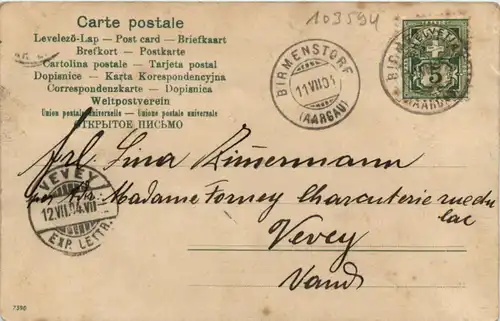 103594
Carte postale
Levelező-Lap — Post card — Briefkaart
Brefkort — Postkarte
Cartolina postale — Tarjeta postal
Dopisnice - Karta Korespondencyjna
Correspondenzkarte — Dopisnica
Weltpostverein
Union postale universelle — Unione postale universale
ОТКРЫТОЕ ПИСЬМО
BIRMENSTORF
11.VII.04
(AARGAU)
HELVETIA
5
(AARGAU)
Frl. Lina Zimmermann
Madame Forney Charcuterie rue du
lac
Vevey
Vaud
VEVEY
12.VII.04.VII
EXP. LETTR.
7390